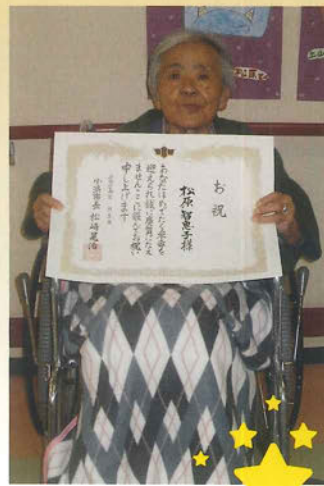 お祝
松原智恵子様
あなたはめでたく米寿を
迎えられ誠に慶賀にたえ
ませんここに謹んでお祝い
申し上げます
小浜市長 松崎晃治